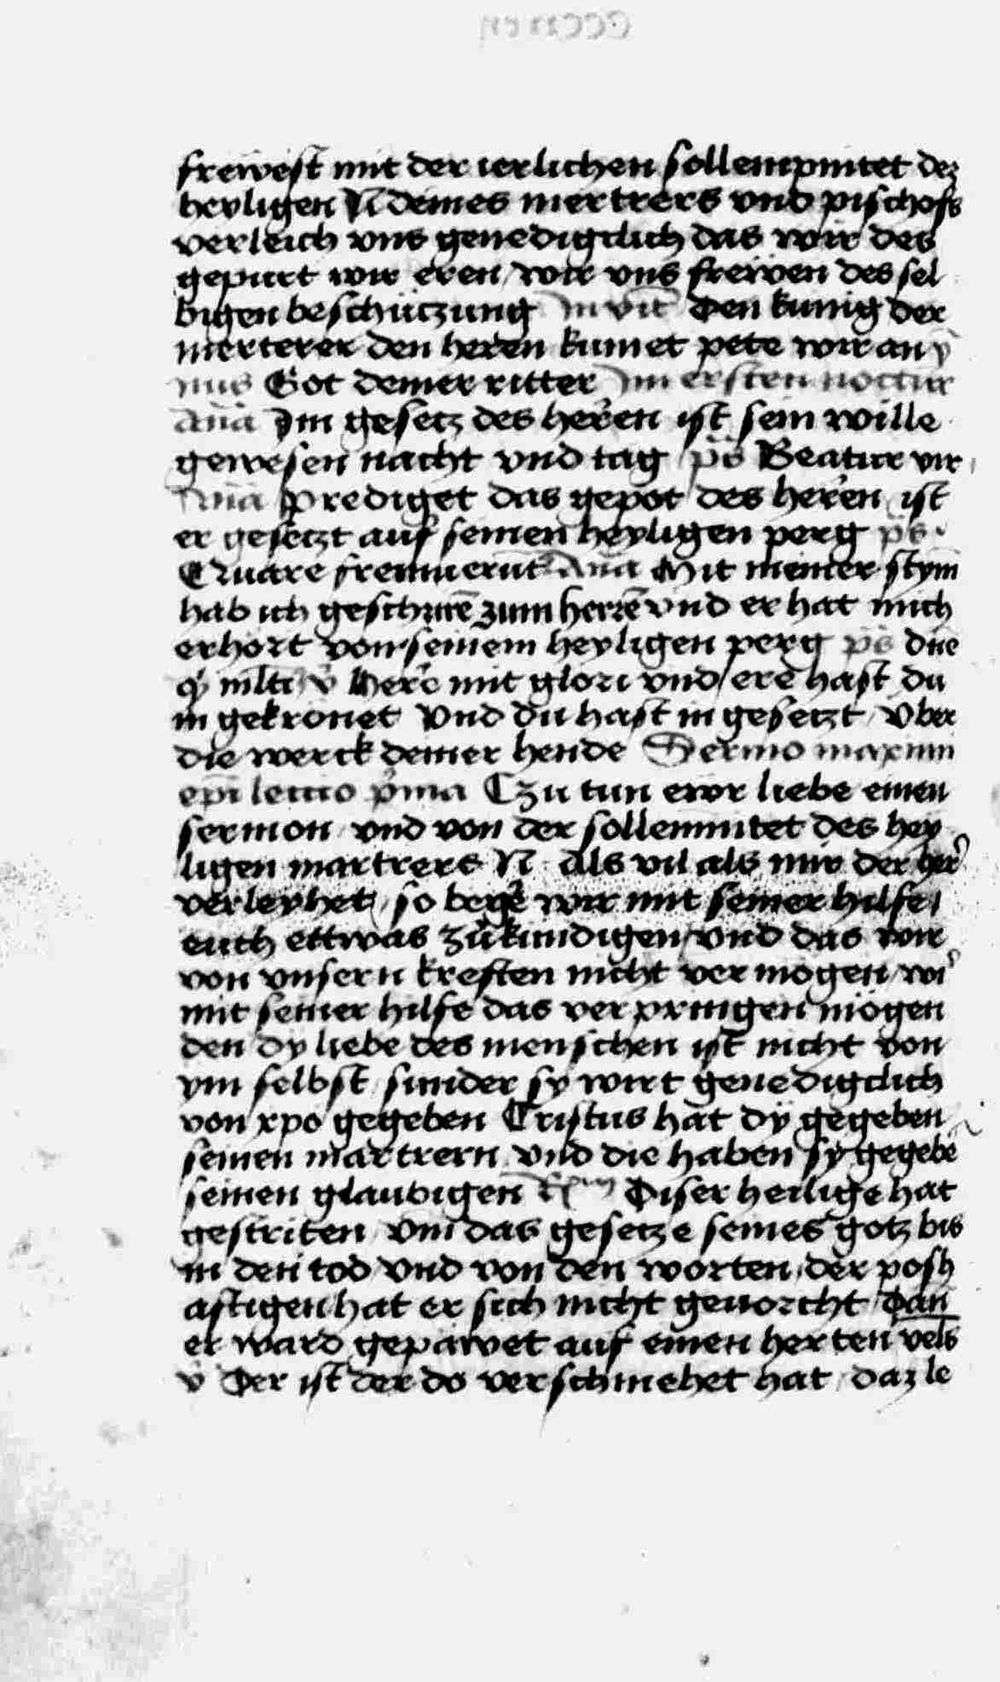 frewest mit der ierlichen sollempnitet dez
heyligen N deines mertrers vnd pischofs
verleich vns genedigclich das wir des
gepurt wir eren wir vns frewen des sel
bigen beschüczung In vit̄ Den kunig der
merterer den heren kumet pete wir an ÿ
nus Got deiner ritter Im ersten nocturn
an̄a Im gesetz des heren ist sein wille
gewesen nacht vnd tag p̄s Beatus vir
An̄a prediget das gepot des heren ist
er gesetzt auf seinen heyligen perg p̄s
Quare fremuerūt An̄a Mit meiner stym̄
hab ich geschriē zum herrē vnd er hat mich
erhort von seinem heyligen perg p̄s dn̄e
q̇ ml̄ti v̇ Here mit glori vnd ere hast du
in gekronet Vnd du hast in gesetzt Vber
die werck deiner hende Sermo maximi
ep̄i leccio p̊ma Czu tun ewr liebe einen
sermon vnd von der sollemnitet des hey
ligen martrers N als vil als mir der her̓
verleyhet so begē wir mit seiner hilfe
euch ettwas zu kundigen vnd das wir
von vnsern kreften nicht vermogen wi̓
mit seiner hilfe das verpringen mögen
den dy liebe des menschen ist nicht von
ym selbst sunder sy wirt genedigclich
von xpo gegeben Cristus hat dy gegeben
seinen martrern vnd die haben sy gegebē
seinen glaubigen Diser heilige hat
gestriten vm̄ das gesetze seines gotz bis
in den tod vnd von den worten der posh
aftigen hat er sich nicht geuorcht Dan̄
er ward gepawet auf einen herten vels
v̇ Der ist der do verschmehet hat daz le